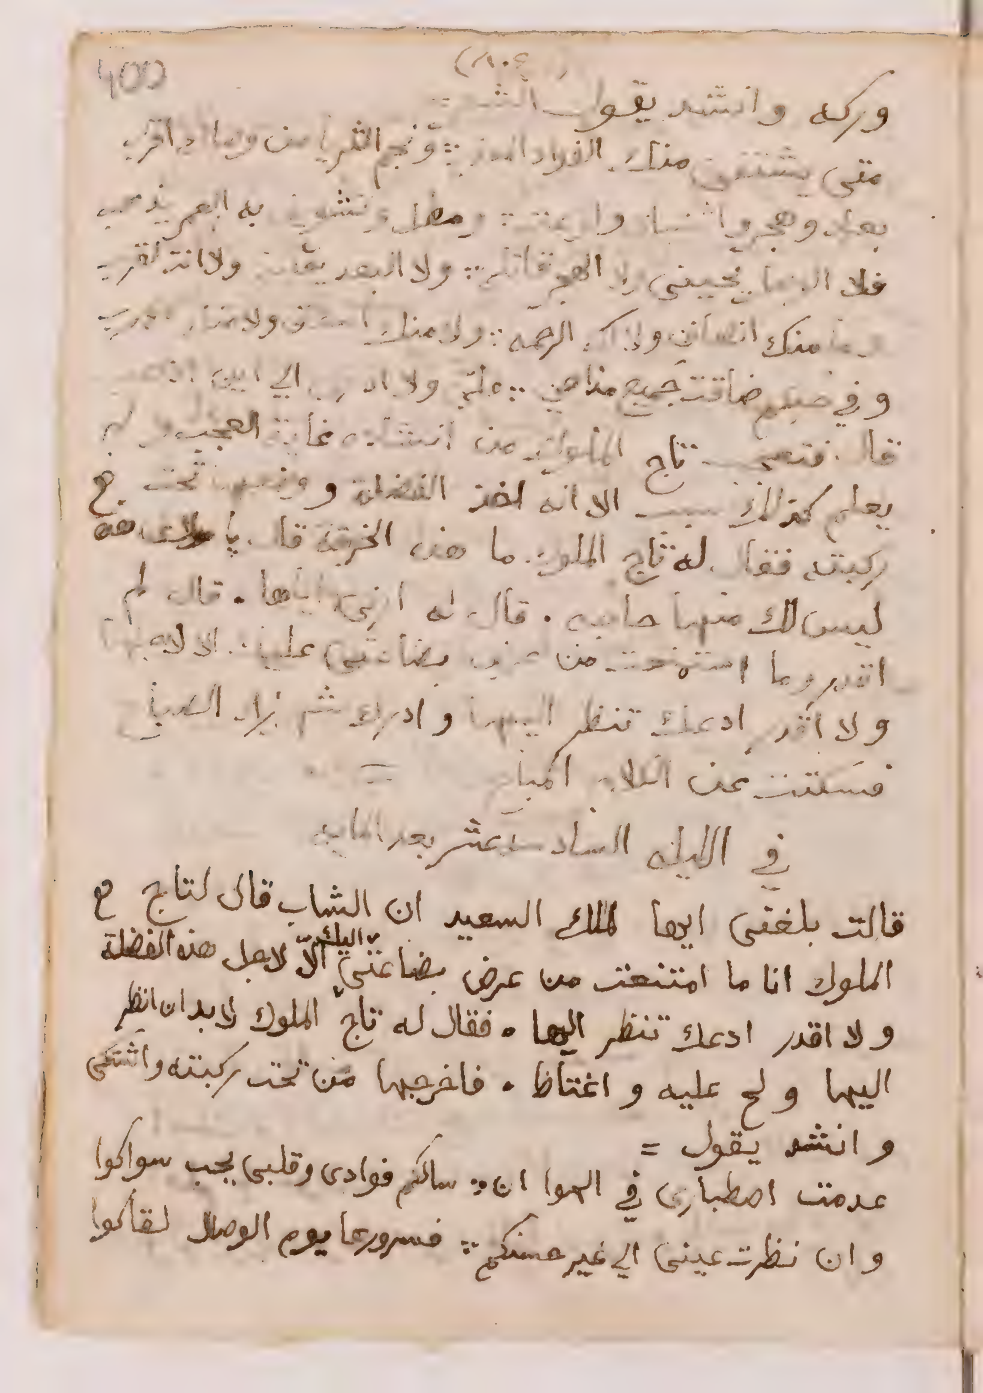 400
وركه وانشد يقول الشعر
متى يشتفي منك الفواد المعذب ؞ ونجم الثريا من وصالك اقرب
بعاد وهجر واشتياق ولوعة ؞ ومطل وتشويف به العمر يذهب
فلا الوصل يحييني ولا الهجر قاتلي ؞ ولا البعد ولا انت تقرب
وما منك انصاف ولا لك الرحمه ؞ ولا منك ولا منك مهرب
وفي حبكم ضاقت جميع مذاهبي ؞ علي ولا ادري الي اين اذهب
قال فتعجب تاج الملوك من انشاده غاية العجب ولم
يعلم لذلك سبب الا انه اخذ الفضلة ووضعها تحت
ركبته فقال له تاج الملوك ما هذه الخرقة قال يا مولاى هذه
ليس لك منها حاجه . قال له ارني اياها . قال لم
اقدر وما امتنعت من عرض بضاعتى عليك الا لاجلها
ولا اقدر ادعك تنظر اليها وادرك شهرزاد الصباح
فسكتت عن الكلام المباح
في الليله السادسة عشر بعد المايه
قالت بلغنى ايها الملك السعيد ان الشاب قال لتاج
الملوك انا ما امتنعت من عرض بضاعتي اليك الّا لاجل هذه الفضلة
ولا اقدر ادعك تنظر اليها . فقال له تاج الملوك لا بد ان انظر
اليها ولح عليه واغتاظ . فاخرجها من تحت ركبته واشتكى
وانشد يقول =
عدمت اصطبارى في الهوا ان ؞ سالكم فوادى وقلبى يحب سواكوا
وان نظرت عينى الي غير حسنكم ؞ فسرورها يوم الوصال لقاكوا